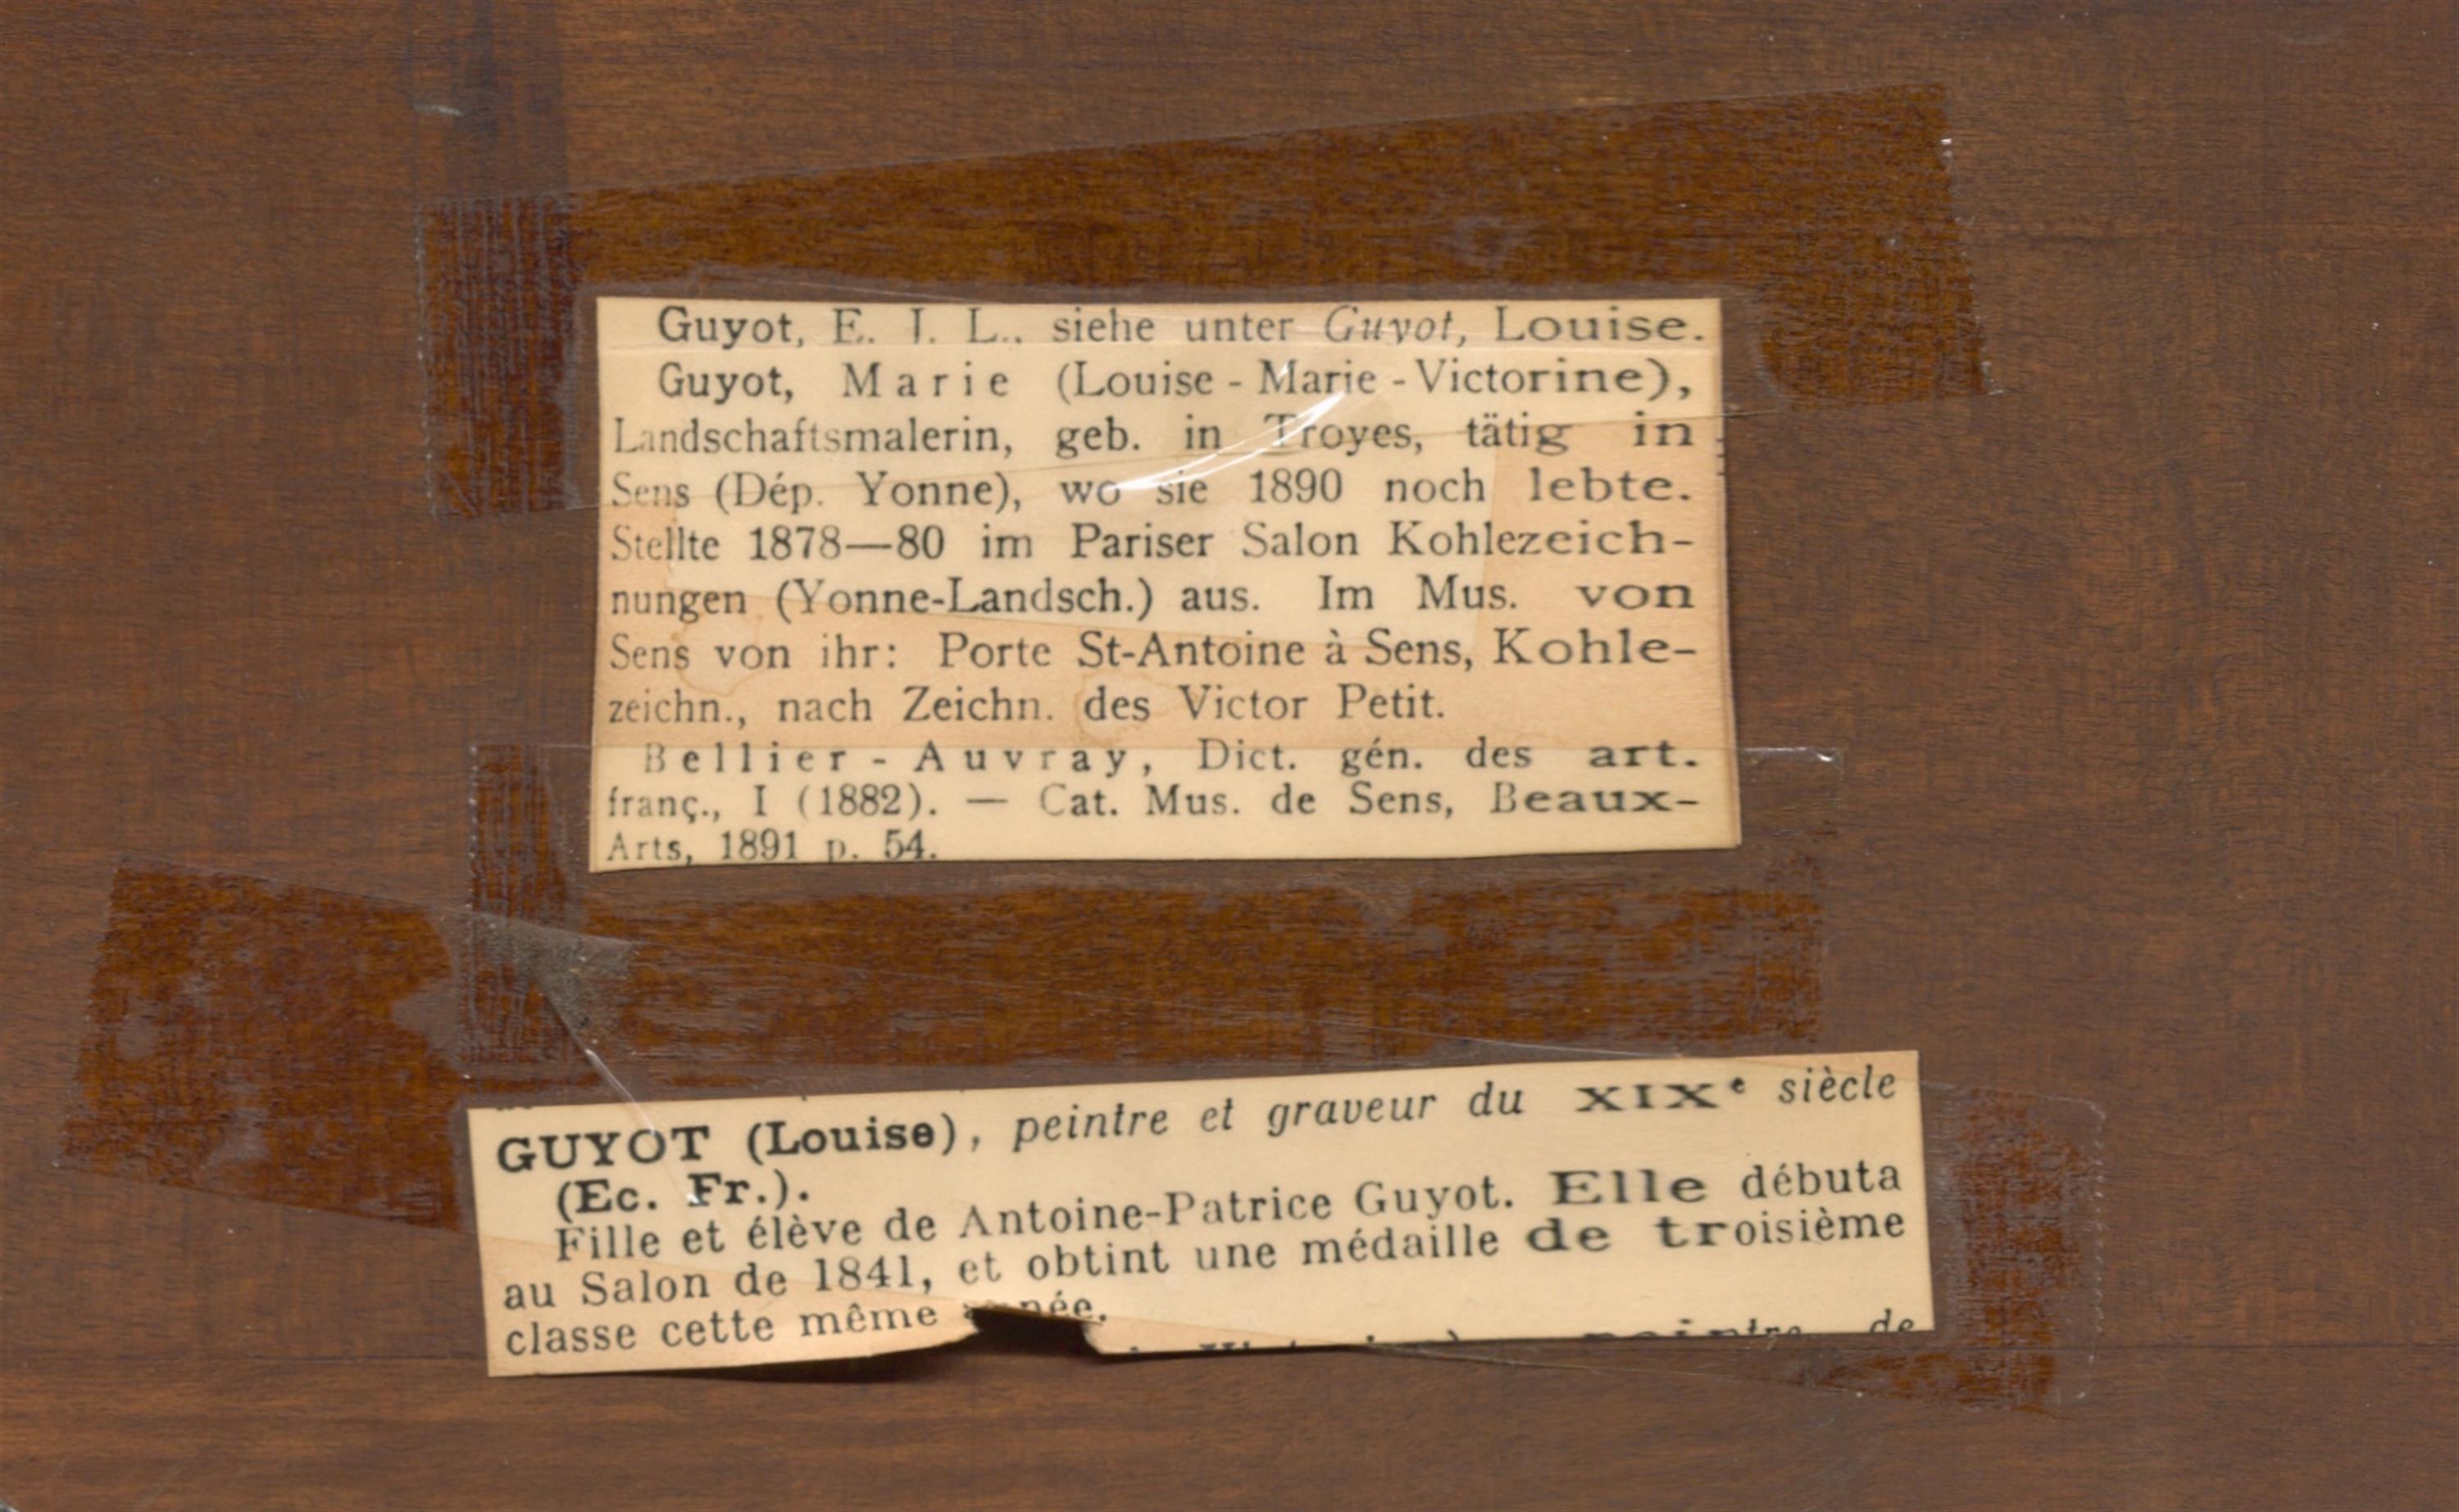 Guyot, E. J. L., siehe unter Guyot, Louise.
Guyot, Marie (Louise - Marie - Victorine),
Landschaftsmalerin, geb. in Troyes, tätig in
Sens (Dép. Yonne), wo sie 1890 noch lebte.
Stellte 1878—80 im Pariser Salon Kohlezeich-
nungen (Yonne-Landsch.) aus. Im Mus. von
Sens von ihr: Porte St-Antoine à Sens, Kohle-
zeichn., nach Zeichn. des Victor Petit.
Bellier - Auvray, Dict. gén. des art.
franç., I (1882). — Cat. Mus. de Sens, Beaux-
Arts, 1891 p. 54.
GUYOT (Louise), peintre et graveur du XIXe siècle
(Ec. Fr.).
Fille et élève de Antoine-Patrice Guyot. Elle débuta
au Salon de 1841, et obtint une médaille de troisième
classe cette même année.
peintre de